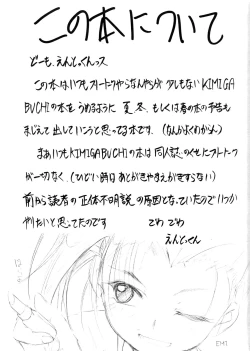 この本について
どーも、えんどっくんっス
この本はいつもフリートークやらなんやらが少しもないKIMIGA
BUCHIの本を、うめるように夏、冬、もしくは春の本の予告も
まじえて出していこうと思ってる本です、(なんかよくわからん)
まあいつもKIMIGABUCHIの本は同人誌のくせにフリートーク
が一切なく、(ひどい時はあとがきやまえがきすらない)
前から読者の正体不明説の原因となっていたのでいつか
やりたいと思ってたのです　でわ でわ
えんどっくん
EMI